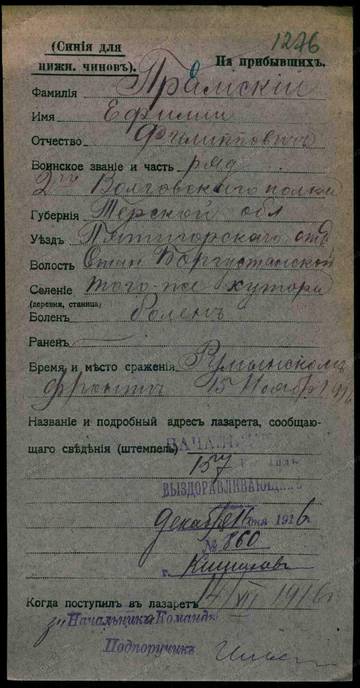 1276
(Синія для
нижн. чиновъ).
На прибывшихъ.
Фамилія Прамскій
Имя Ефимій
Отчество Филипповичъ
Воинское званіе и часть ряд
2го Волговского полка
Губернія Терской обл
Уѣздъ Пятигорскаго отд
Волость Стан Баргустанской
Селеніе того-же хутора
(деревня, станица)
Боленъ Боленъ
Раненъ
Время и мѣсто сраженія Румынскомъ
фронтѣ 15 Ноября 1916
Названіе и подробный адресъ лазарета, сообщаю-
щаго свѣдѣнія (штемпель)
НАЧАЛЬНИКЪ
157
ВЫЗДОРАВЛИВАЮЩИХЪ
Декабря 16 дня 1916
№ 860
г. Кишиневъ
Когда поступилъ в лазаретъ 14/VII 1916
Начальникъ Команды
Подпоручикъ